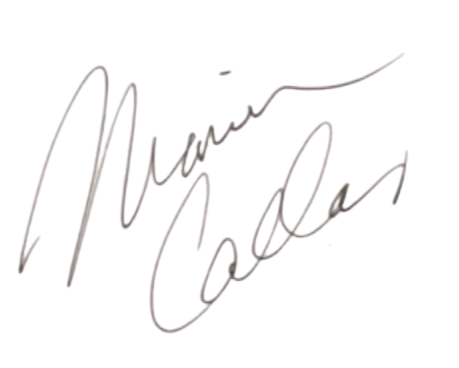 Maria
Callas